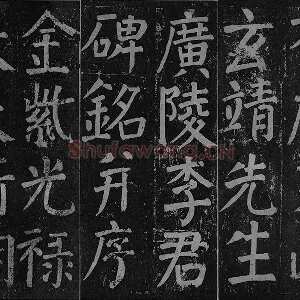 玄靖先生
廣陵李君
碑銘并序
金紫光禄
Shufawang.CN